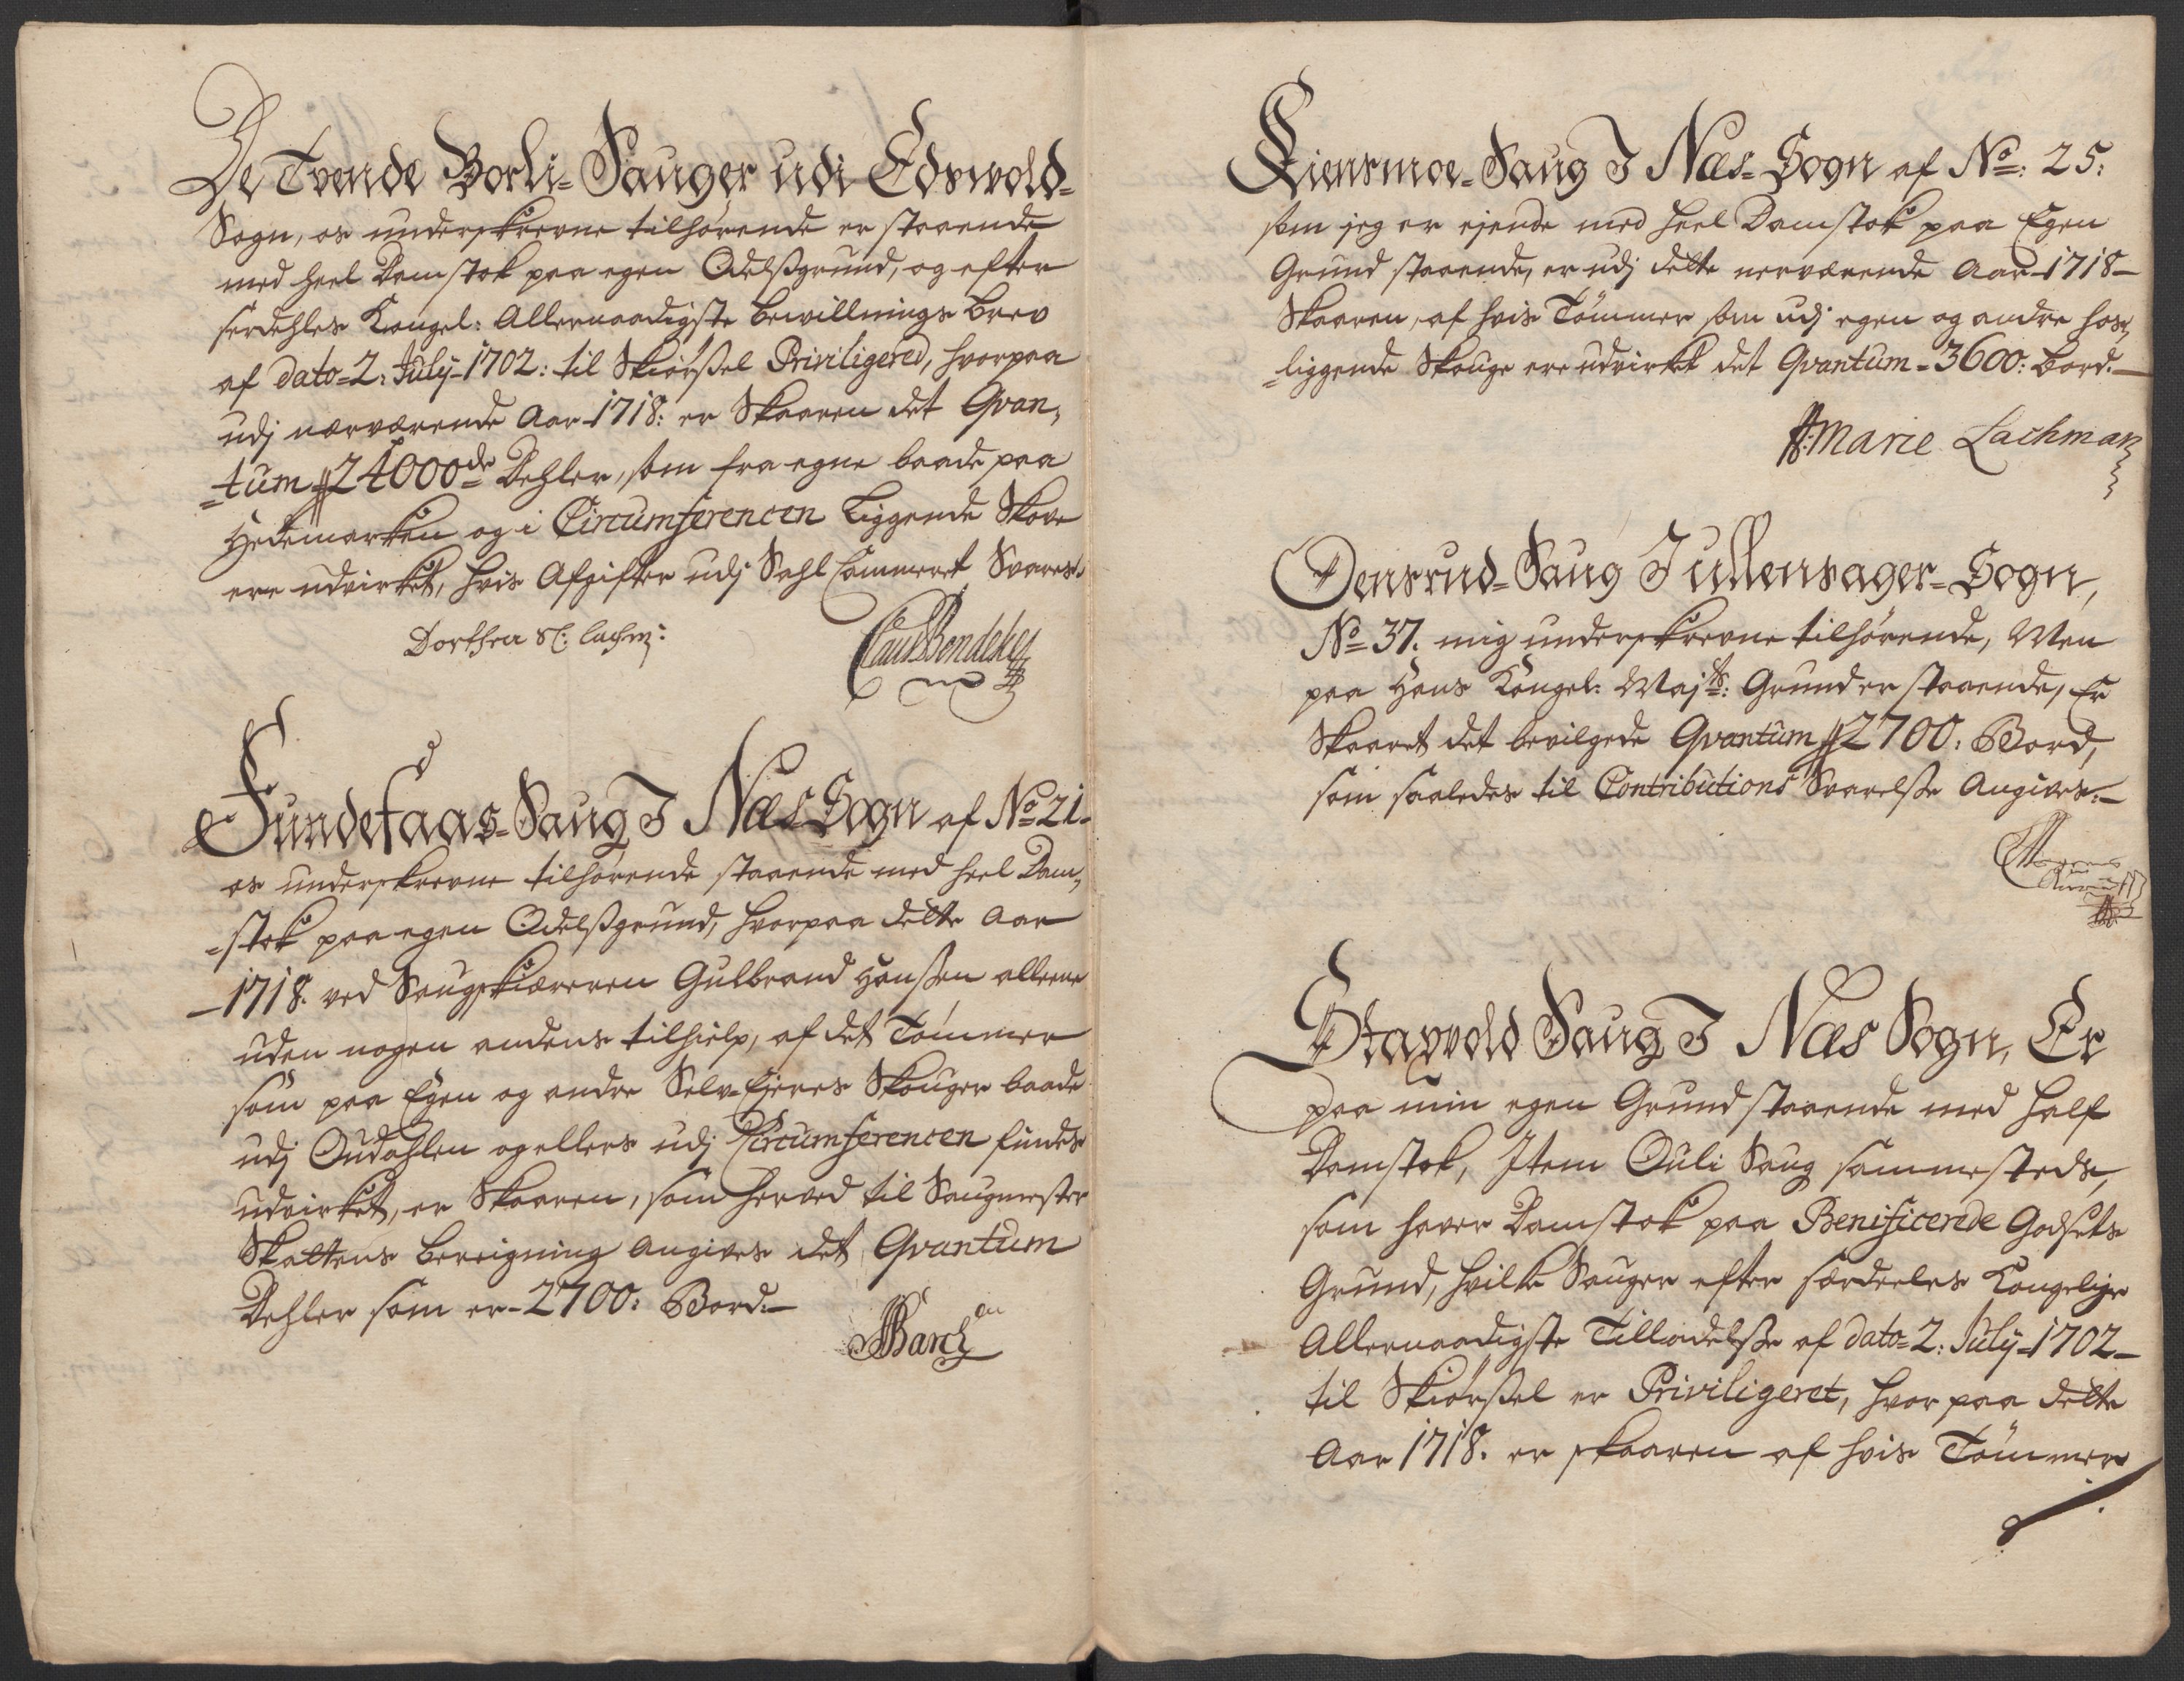 De Tvende Borli-Sauger udi Edswold-
Sogn, os underskrevne tilhørende er staaende
med heel Damstok paa egen Odelsgrund, og efter
serdehles Kongel: Allernaadigste bewillnings brev
af dato-2: July-1702: til Skiørsel Priviligered, hvorpaa
udj nærværende Aar-1718: er Skaaren det Qvan,
=tum 24000de Dehler, som fra egne baade paa
Hedemarken og i Circumferencen Liggende Skove
ere udvirket, hvis Afgifter udj Sahl Cammeret Svares.
Dorthea Sl: Lachm:
Claus Bendeke
Fundefaas-Saug I Næs Sogn af No 21-
os underskrevne tilhørende staaende med heel Dam,
=stok paa egen Odelsgrund, hvorpaa dette Aar
-1718. ved Saugskiæreren Gulbrand Hanssen alleene
uden nogen andens tilhielp, af det Tømmer
som paa Egen og andre Selv-Eieres Skouger baade
udj Oudahlen og ellers udj Circumferencen findes
udvirket, er Skaaren, som herved til Saugmester
Skattens bereigning Angives det Qvantum
Dehler som er-2700: Bord.-
Barch
Kiensmoe-Saug I Næs-Sogn af No: 25:
som jeg er ejende med heel Damstok paa Egen
Grund staaende, er udj dette nerværende Aar-1718-
Skaaren, af hvis Tømmer som udj egen og andre hos,
=liggende Skouge ere udvirket det Qvantum-3600: bord.-
Marie Lachman
Densrud-Saug I Ullensager-Sogn,
No 37. mig underskrevne tilhørende, Men
paa Hans Kongel: Majts: Grund er staaende, Er
Skaaret det bevilgede Qvantum 2700: Bord,
som saaledes til Contributions Svarelse Angives.-
Stavvold Saug I Næs Sogn, Er
paa min egen Grund staaende med half
Damstok, Item Ouli Saug sammesteds,
som haver Damstok paa Benificerede Godsets
Grund, hvilke Sauger efter særdeeles Kongelige
Allernaadigste Tilladelse af dato-2: July-1702-
til Skiørsel er Priviligeret, hvor paa dette
Aar 1718. er skaaren af hvis Tømmer